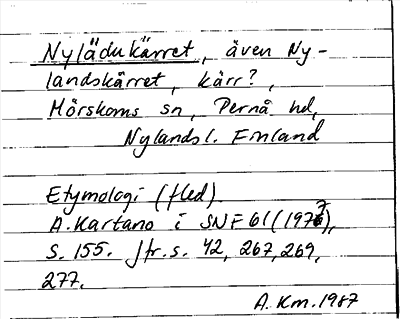 Nylädukärret, även Ny-
landskärret, kärr?,
Mörskoms sn, Pernå hd,
Nylands l. Finland
Etymologi (fled).
A. Kartano i SNF 61 (1973),
s. 155. Jfr. s. 42, 267, 269,
277.
A. Km. 1987